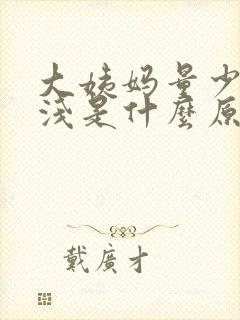 大姨妈量少
浅是什麼原
戴廣才